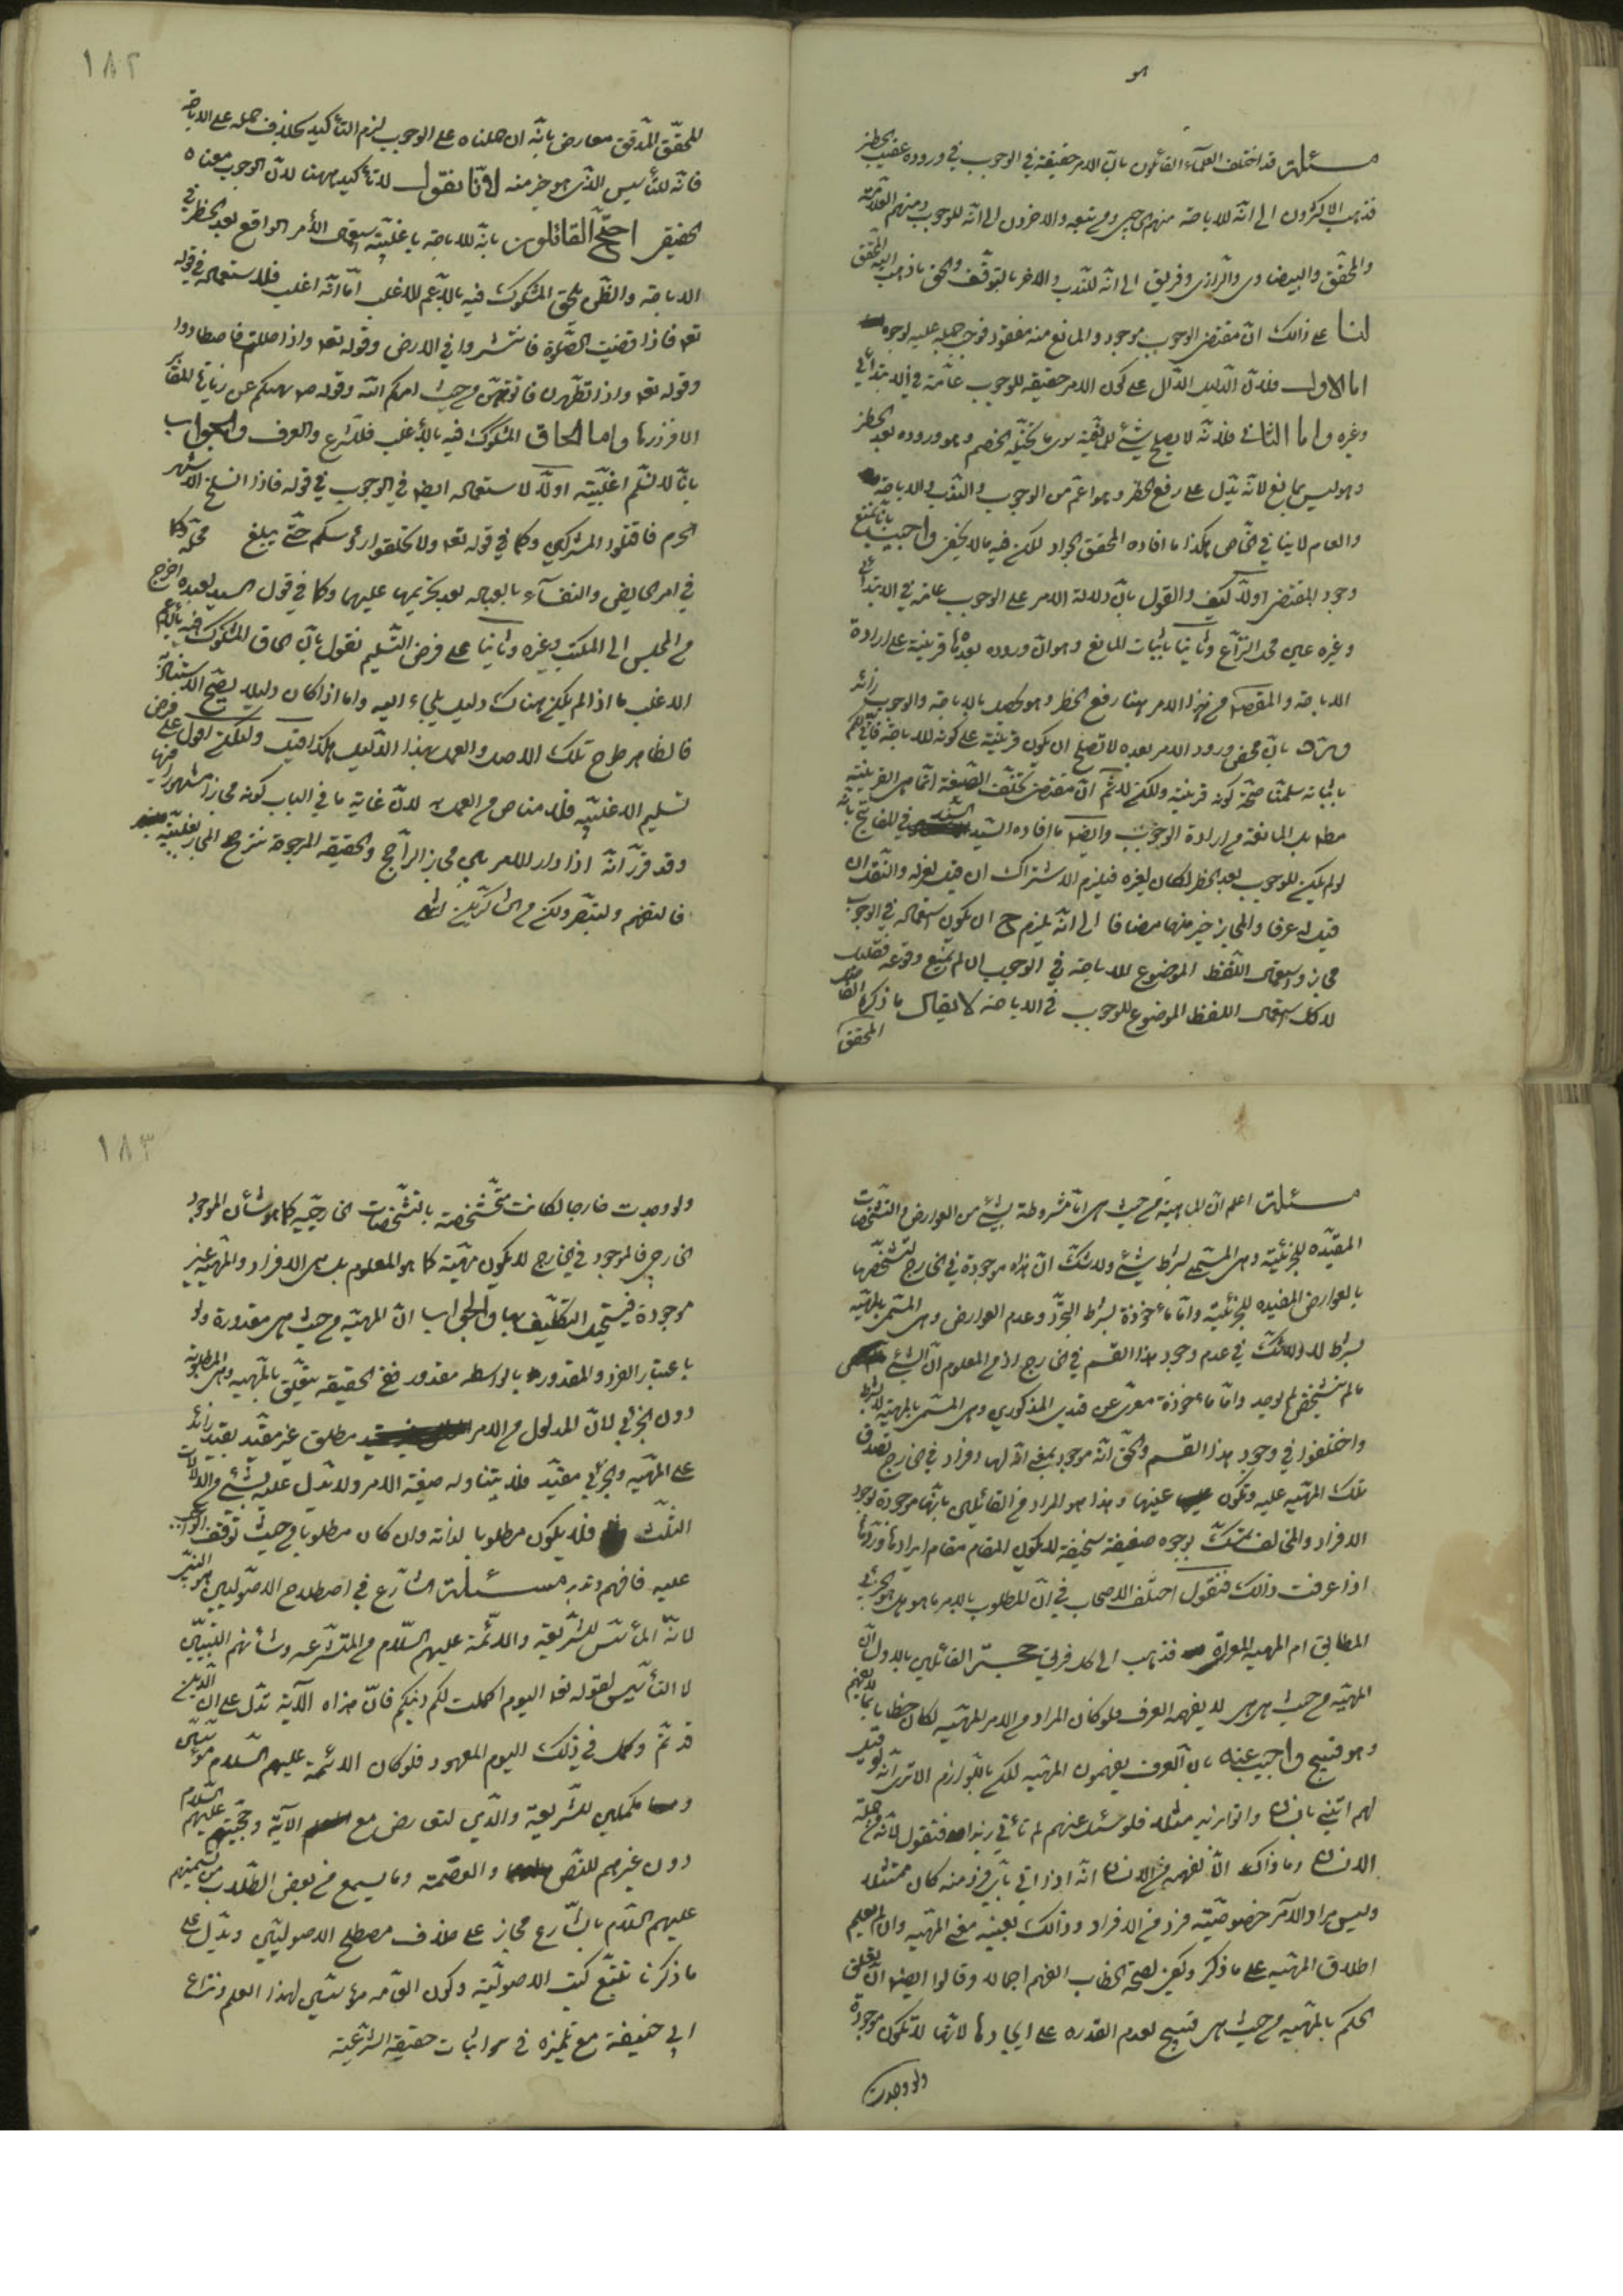 هو
مسئلة قد اختلف العلمآء القائلون بانّ الامر حقيقة في الوجوب في وروده عقيب الحظر
فذهب الاكثرون الى انّه للاباحة منهم الحاجبي ومن تبعه والاخرون الى انّه للوجوب ومنهم العلّامة
والمحقّق والبيضاوى والرازى وفريق الى انّه للندب والاخر بالتوقّف والحق ما ذهب اليه المحقق
لنا على ذالك انّ مقتضى الوجوب موجود والمانع منه مفقود فوجب حمله عليه لوجوه
اما الاول فلانّ الدّليل الدّال على كون الامر حقيقة للوجوب عامّة في الابتدائي
وغيره واما الثاني فلانّه لا يصلح شئ للمانعيّة سوى ما تخيّله الخصم وهو وروده بعد الحظر
وهو ليس بمانع لانّه يدّل على رفع الحظر وهو اعمّ من الوجوب والندب والاباحة
والعام لاينافي الخاص هكذا ما افاده المحقق الجواد لكن فيه ما لا يخفى واجيب بانّا نمنع
وجود المقتضى اولا كيف والقول بانّ دلالة الامر على الوجوب عامة في الابتدائي
وغيره عين محل النزاع وثانيا باثبات المانع وهو انّ وروده بعدها قرينة على ارادة
الاباحة والمقصود من هذا الامر هنا رفع الحظر وهو يحصل بالاباحة والوجوب زائد
وفيه بانّ محض ورود الامر بعده لا تصلح ان يكون قرينة على كونه للاباحة فعليكم
باثباته سلمنا صحّة كونه قرينة ولكن لا ثمّ انّ مقتضى تخلّف الصّيغة انّما هى القرينة
مطلقا بل المانعة من ارادة الوجوب وايضا ما افاده السّيد السّند في المفاتيح بانّه
لو لم يكن للوجوب بعد الحظر لكان لغيره فيلزم الاشتراك ان قيل لغيره والنقل ان
قيل له عرفا والمجاز خير منهما مضافا الى انّه يلزم ح ان يكون استعماله في الوجوب
مجاز واستعمال اللّفظ الموضوع للاباحة في الوجوب ان لم يمتنع وقوعه فقليل
لا كك استعمال اللفظ الموضوع للوجوب في الاباحة لا يقال ما ذكره الفاضل
المحقق
١٨٢
للمحقّق المدقق معارض بانّه ان حملناه على الوجوب لزم التأكيد بخلاف حمله على الاباحة
فانّه للتأسيس الذى هو خير منه لانّا نقول لا تأكيد ههنا لانّ الوجوب معناه
الحقيقى احتجّ القائلون بانّه للاباحة باغلبيّة استعمال الأمر الواقع بعد الحظر في
الاباحة والظّن يلحق المشكوك فيه بالاعم الاغلب امّا انّه اغلب فلاستعماله في قوله
تعه فاذا قضيت الصّلوة فانتشروا في الارض وقوله تعه واذا حللتم فاصطادوا
وقوله تعه واذا تطهّرن فاتوهنّ من حيث امركم اللّه وقوله صه نهيتكم عن زيارة المقابر
الا فزوروها واما الحاق المشكوك فيه بالأغلب فللشرع والعرف والجواب
بانّا لا نسلّم اغلبيّته اولا لاستعماله ايضا في الوجوب في قوله فاذا انسلخ الاشهر
الحرم فاقتلوا المشركين وكما في قوله تعه ولا تحلقوا رؤسكم حتّى يبلغ محلّه وكما
في امر الحايض والنفسآء بالعباده بعد تحريمها عليهما وكما في قول السيد لعبده اخرج
من المجلس الى المكتب وغيره وثانيا على فرض التّسليم نقول بانّ الحاق المشكوك فيه بالاعم
الاغلب ما اذا لم يكن هناك دليل يلجاء اليه واما اذا كان دليلا يصح الاستناد
فالظاهر طرح تلك الاصل والعمل بهذا الدّليل هكذا قيل ولكن اقول على فرض
تسليم الاغلبيّة فلا مناص من العمل لانّ غاية ما في الباب كونه مجازا مشهورا فيها
وقد قرّر انّه اذا دار الامر بين مجاز الرّاجح والحقيقة المرجوحة نترجح المجاز بغلبيّته
فالتفهم ولتبصّر ولكن من الشاكرين
مسئلة اعلم انّ الماهيّة من حيث هى امّا مشروطة بشئ من العوارض والتشخصات
المقيّده للجزئيّة وهى المسمّى بشرط شئ ولا شكّ انّ هذه موجودة في الخارج لتشخّصها
بالعوارض المفيده للجزئيّة وامّا مأخوذة بشرط التجرّد وعدم العوارض وهى المسمى بالمهيّة
بشرط لا ولا شكّ في عدم وجود هذا القسم في الخارج اذ من المعلوم انّ الشئ
ما لم يتشخّص لم يوجد وامّا مأخوذة معرّى عن قيدى المذكورين وهى المسمّى بالمهيّة لا بشرط
واختلفوا في وجود هذا القسم والحقّ انّه موجود بمعنى انّه لها افراد في الخارج تصدق
تلك المهيّة عليه وتكون عينها وهذا هو المراد من القائلين بانّها موجودة لوجود
الافراد والمخالف تمسّك بوجوه ضعيفة سخيفة لا يكون المقام مقام ايرادها وردّها
اذا عرفت ذالك فنقول اختلف الاصحاب في انّ المطلوب بالامر ما هو هل هو الجزئي
المطابق ام المهية المعراة فذهب الى كل فريق حجّة القائلين بالاول انّ
المهيّة من حيث هى هى لا يفهمه العرف فلو كان المراد من الامر المهيّة لكان خطابا بما لا يفهم
وهو قبيح واجيب عنه بانّ العرف يفهمون المهيّه لكن باللّوازم الا ترى انّه لو قيل
لهم ائتنى بانسان واتوا بزيد مثلا فلو سئلت عنهم لم تأتى زيدا فتقول لانّه من جملة
الانسان وما ذاك الّا لفهم من الانسان انّه اذا اتى بأىّ فرد منه كان ممتثلا
وليس مراد الآمر خصوصيّة فرد من الافراد وذالك بعينه معنى المهيّه وان لم يعلم
اطلاق المهيّه على ما ذكر ويكفى لصحّة الخطاب الفهم اجمالا وقالوا ايضا انّ تعلّق
الحكم بالمهيّه من حيث هى قبيح لعدم القدره على ايجادها لانّها لا تكون موجودة
ولو وجدت
١٨٣
ولو وجدت خارجا لكانت متشخّصة بالتّشخّصات الخارجيّه كما هو شأن الموجود
الخارجي فالموجود في الخارج لا يكون مهيّة كما هو المعلوم بل هى الافراد والمهيّة غير
موجودة فيستحيل التكليف بها والجواب انّ المهيّه من حيث هى مقدورة ولو
باعتبار الفرد والمقدور بالواسطه مقدور ففى الحقيقة يتعلّق بالمهيه وهى المطلوبة
دون الجزئي لانّ المدلول من الامر مطلق غير مقيّد بقيد زائد
على المهيّه والجزئي مقيّد فلا يتناوله صيغة الامر ولا تدل عليه بشئ من الدلالات
الثلث فلا يكون مطلوبا لذاته وان كان مطلوبا من حيث توقّف الواجب
عليه فافهم وتدبر مسئلة الشارع في اصطلاح الاصوليين هو النبيّ
لانّه المأسّس للشريعة والائمّة عليهم السّلام من المتشرّعه وشأنهم التبيين
لا التأسيس لقوله تعه اليوم اكملت لكم دينكم فانّ هذه الآية تدّل على ان الدّين
قد تمّ وكمل في ذلك اليوم المعهود فلو كان الائمّة عليهم السّلام مؤسّسين
ومكملين للشّريعة والدّين لتعارض مع الآية وحجّيتهم عليهم السّلام
دون غيرهم للنّص والعصمة وما يسمع من بعض الطّلاب من تسميتهم
عليهم السّلام بالشّارع مجاز على خلاف مصطلح الاصوليّين ويدّل على
ما ذكرنا تتبّع كتب الاصوليّة وكون العامّه مؤسّسين لهذا العلم ونزاع
ابي حنيفة مع تلميذه في اثبات حقيقة الشرعيّة